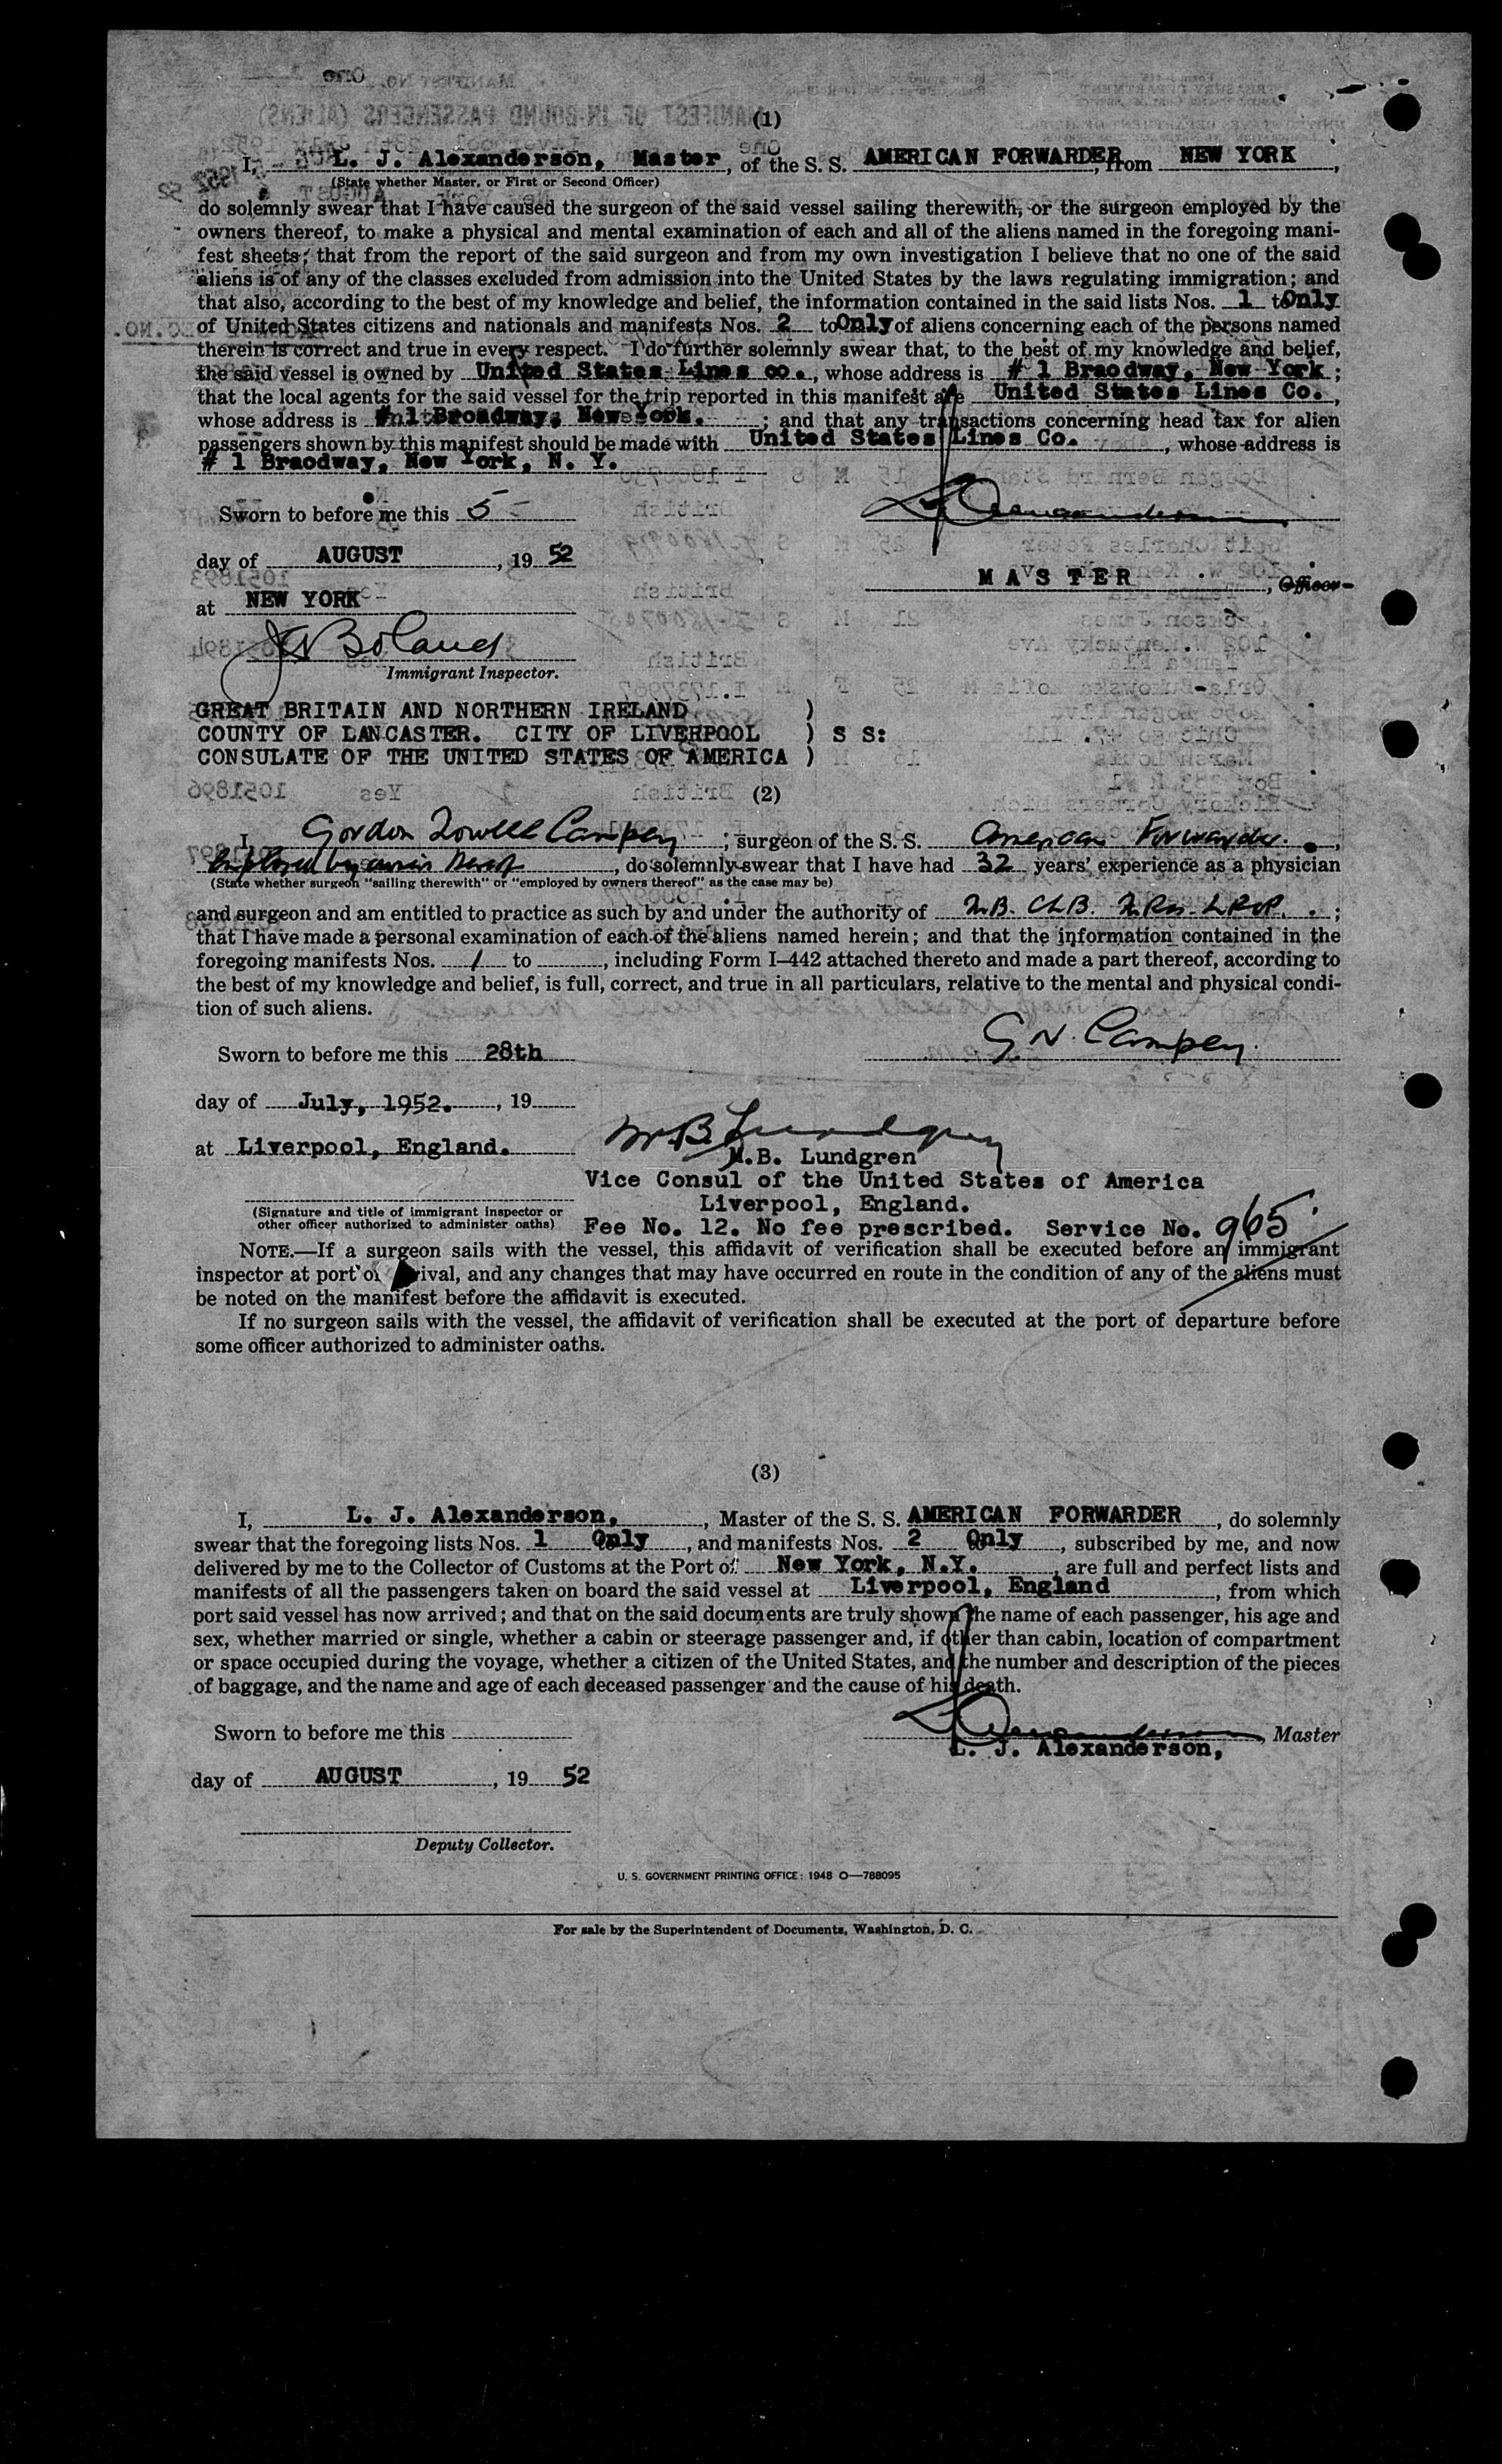 (1)
I, L. J. Alexanderson, Master, of the S. S. AMERICAN FORWARDER, from NEW YORK,
(State whether Master, or First or Second Officer)
do solemnly swear that I have caused the surgeon of the said vessel sailing therewith, or the surgeon employed by the
owners thereof, to make a physical and mental examination of each and all of the aliens named in the foregoing mani-
fest sheets; that from the report of the said surgeon and from my own investigation I believe that no one of the said
aliens is of any of the classes excluded from admission into the United States by the laws regulating immigration; and
that also, according to the best of my knowledge and belief, the information contained in the said lists Nos. 1 to Only
of United States citizens and nationals and manifests Nos. 2 to Only of aliens concerning each of the persons named
therein is correct and true in every respect. I do further solemnly swear that, to the best of my knowledge and belief,
the said vessel is owned by United States Lines co., whose address is # 1 Braodway, New York;
that the local agents for the said vessel for the trip reported in this manifest are United States Lines Co.,
whose address is # 1 Broadway, New York.; and that any transactions concerning head tax for alien
passengers shown by this manifest should be made with United States Lines Co., whose address is
# 1 Braodway, New York, N. Y.
Sworn to before me this 5
day of AUGUST, 19 52
MASTER, Officer
at NEW YORK
Boland
Immigrant Inspector.
GREAT BRITAIN AND NORTHERN IRELAND )
COUNTY OF LANCASTER. CITY OF LIVERPOOL ) S S:
CONSULATE OF THE UNITED STATES OF AMERICA )
(2)
I, Gordon Campey; surgeon of the S. S. American Forwarder.,
employed by, do solemnly swear that I have had 32 years' experience as a physician
(State whether surgeon "sailing therewith" or "employed by owners thereof" as the case may be)
and surgeon and am entitled to practice as such by and under the authority of M.B. Ch.B. L.R.C.P.;
that I have made a personal examination of each of the aliens named herein; and that the information contained in the
foregoing manifests Nos. 1 to , including Form I-442 attached thereto and made a part thereof, according to
the best of my knowledge and belief, is full, correct, and true in all particulars, relative to the mental and physical condi-
tion of such aliens.
G N. Campey.
Sworn to before me this 28th
day of July, 1952., 19
at Liverpool, England.
M.B. Lundgren
M.B. Lundgren
Vice Consul of the United States of America
Liverpool, England.
(Signature and title of immigrant inspector or
other officer authorized to administer oaths)
Fee No. 12. No fee prescribed. Service No. 965
NOTE.—If a surgeon sails with the vessel, this affidavit of verification shall be executed before an immigrant
inspector at port of arrival, and any changes that may have occurred en route in the condition of any of the aliens must
be noted on the manifest before the affidavit is executed.
If no surgeon sails with the vessel, the affidavit of verification shall be executed at the port of departure before
some officer authorized to administer oaths.
(3)
I, L. J. Alexanderson, , Master of the S. S. AMERICAN FORWARDER, do solemnly
swear that the foregoing lists Nos. 1 Only, and manifests Nos. 2 Only, subscribed by me, and now
delivered by me to the Collector of Customs at the Port of New York, N.Y., are full and perfect lists and
manifests of all the passengers taken on board the said vessel at Liverpool, England, from which
port said vessel has now arrived; and that on the said documents are truly shown the name of each passenger, his age and
sex, whether married or single, whether a cabin or steerage passenger and, if other than cabin, location of compartment
or space occupied during the voyage, whether a citizen of the United States, and the number and description of the pieces
of baggage, and the name and age of each deceased passenger and the cause of his death.
Sworn to before me this
, Master
L. J. Alexanderson,
day of AUGUST, 19 52
Deputy Collector.
U. S. GOVERNMENT PRINTING OFFICE: 1948 O—788095
For sale by the Superintendent of Documents, Washington, D. C.